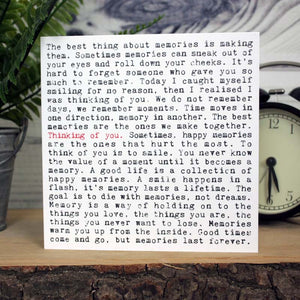 The best thing about memories is making
them. Sometimes memories can sneak out of
your eyes and roll down your cheeks. It's
hard to forget someone who gave you so
much to remember. Today I caught myself
smiling for no reason, then I realised I
was thinking of you. We do not remember
days, we remember moments. Time moves in
one direction, memory in another. The best
memories are the ones we make together.
Thinking of you. Sometimes, happy memories
are the ones that hurt the most. To
think of you is to smile. You never know
the value of a moment until it becomes a
memory. A good life is a collection of
happy memories. A smile happens in a
flash, it's memory lasts a lifetime. The
goal is to die with memories, not dreams.
Memory is a way of holding on to the
things you love, the things you are, the
things you never want to lose. Memories
warm you up from the inside. Good times
come and go, but memories last forever.